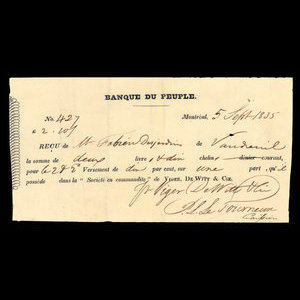 BANQUE DU PEUPLE.
No. 427 Montreal, 5 Sept 1835
£ 2.10/
REÇU de Mr Fabien Desjardins de Vaudreuil
la somme de deux livres & dix chelins dinier courant,
pour le 2d Versement de dix per cent, sur une part, qu'il
possède dans la "Société en commandite" de VIGER, DE WITT & CIE.
pr Viger DeWitt & Cie